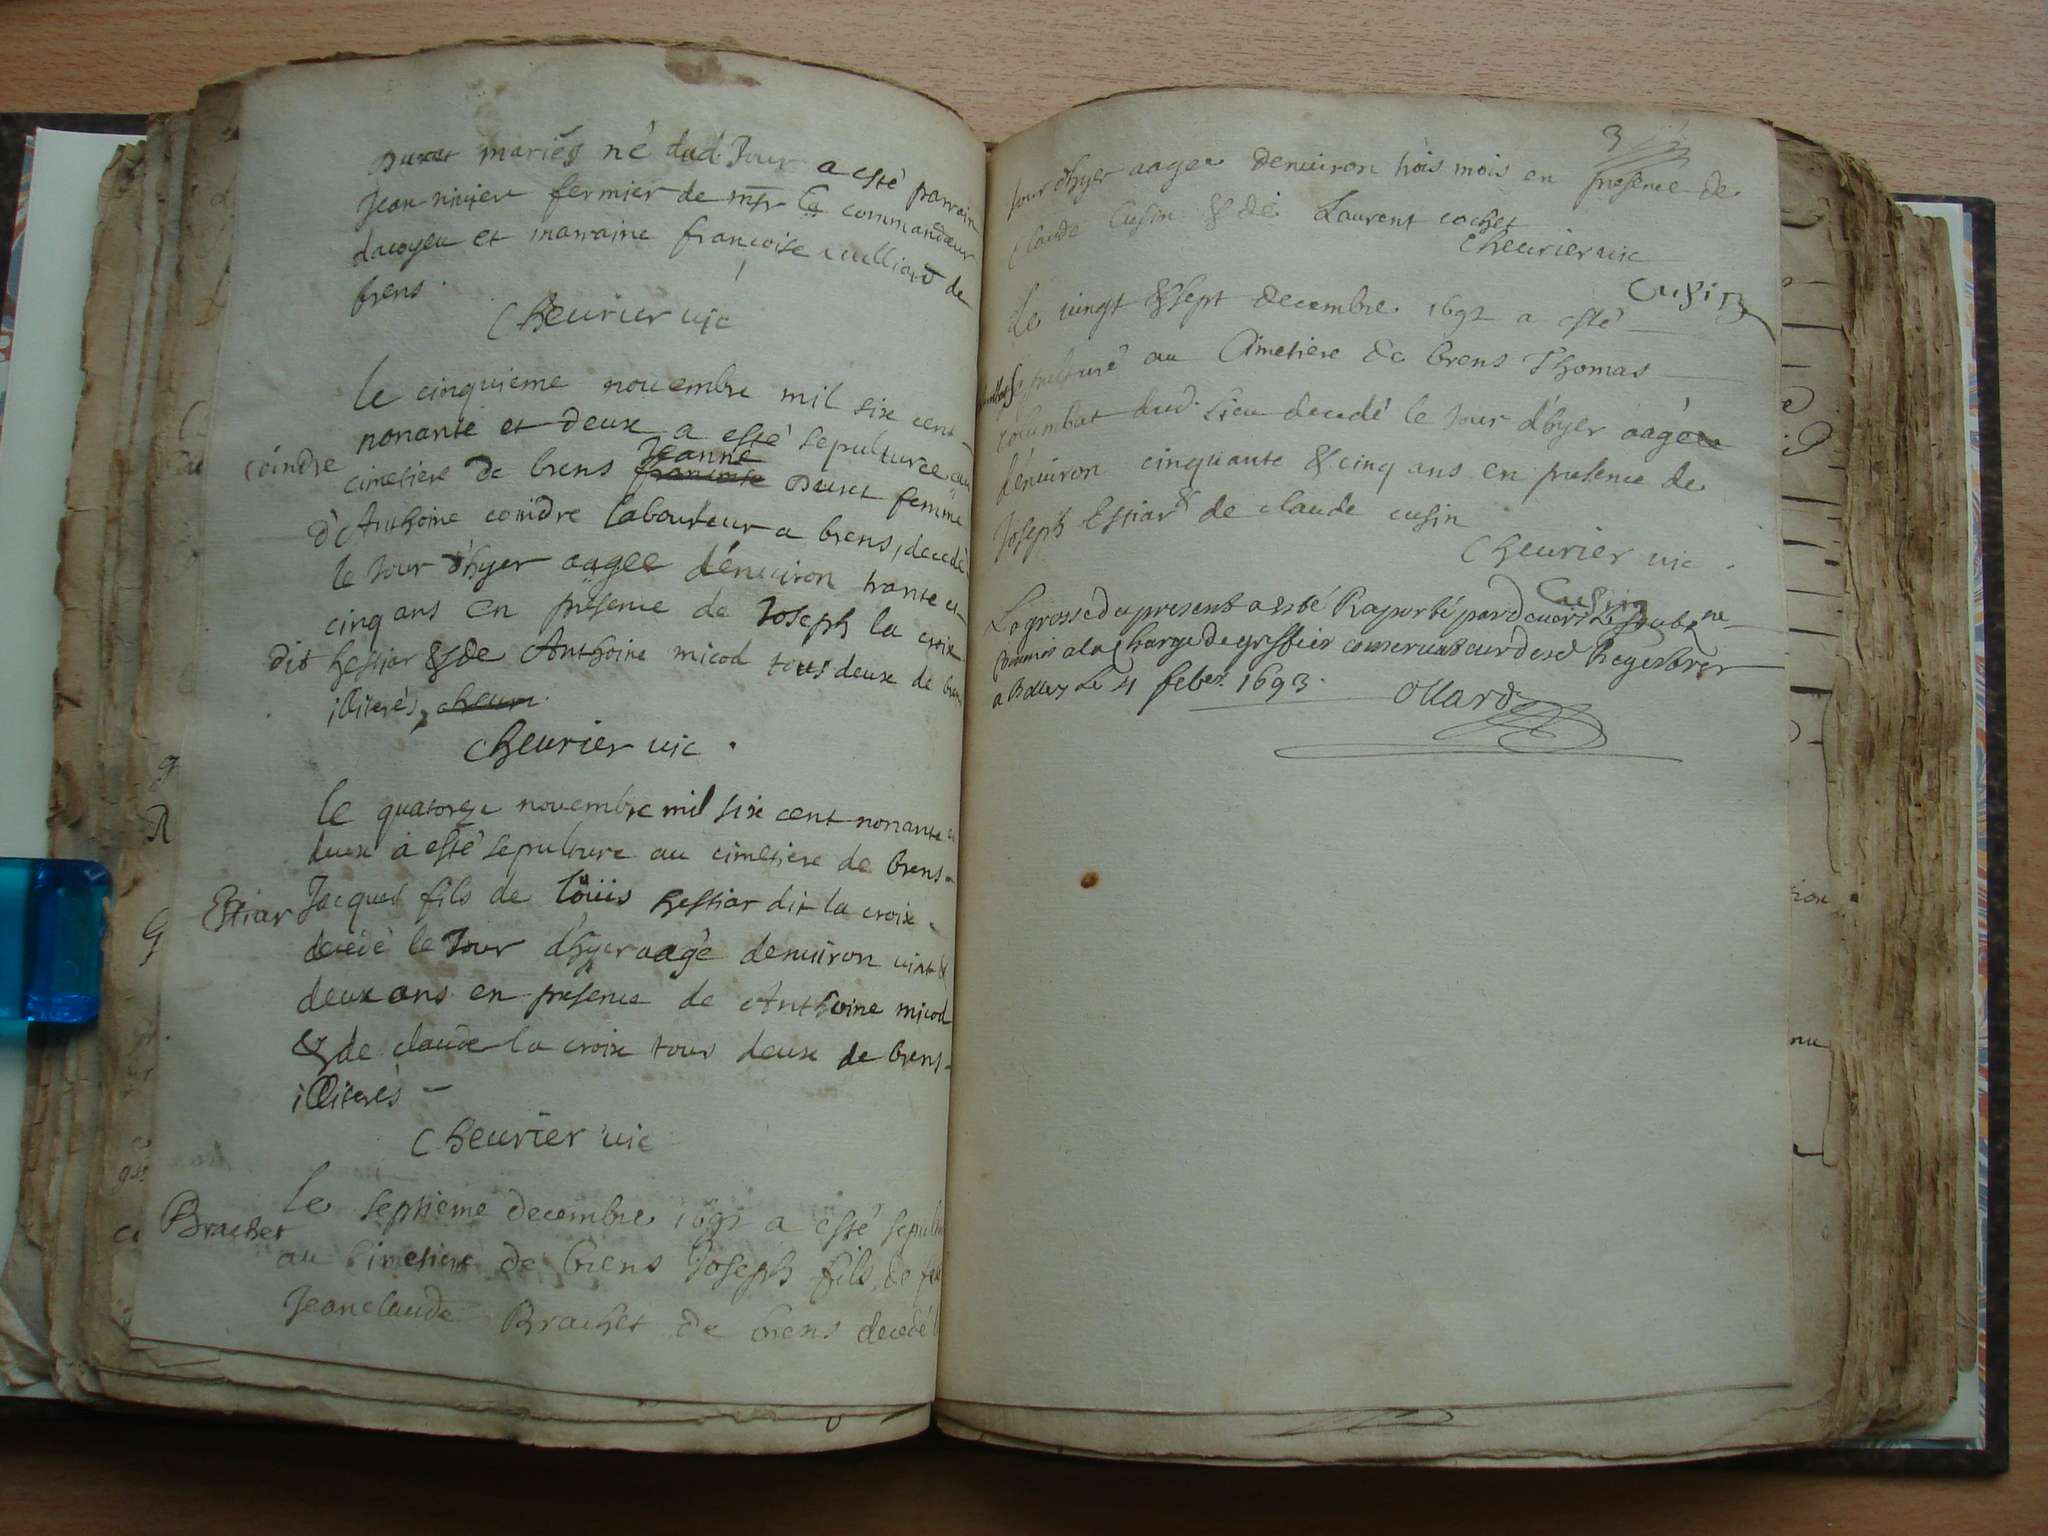 Duret mariés né dud. Jour a esté parrain
Jean fermier de mr le commandeur
dacoyeu et marraine francoise vulliod de
brens.
Cheurier vic
le cinquieme nouembre mil six cent
nonante et deux a esté sepulturee au
coindre
cimetiere de brens Jeanne francoise Duret femme
d'Anthoine coindre laboureur a brens, decedé
le Jour d'hyer aagee d'enuiron trante et
cinq ans en presence de Joseph la croix
dit hestiar & de Anthoine micod tous deux de brens
illiterés, cheur.
Cheurier vic.
le quatorze nouembre mil six cent nonante et
deux a esté sepulture au cimetiere de brens
Estiar
Jacques fils de loüis hestiar dit la croix
decedé le Jour d'hyer aagé denuiron vint &
deux ans en presence de Anthoine micod
& de claude la croix tous deux de brens
illiterés
Cheurier vic
le septieme decembre 1692 a esté sepultu
Brachet
au Cimetiere de brens Joseph fils de feu
Jeanclaude Brachet de brens decedé l
3
Jour d'hyer aagee denuiron trois mois en presence de
Claude Cusin & de Laurent cochet
Cheurier vic
Cusin
le vingt & sept decembre 1692 a esté
sepulturé au Cimetiere de brens Thomas
columbat dud. lieu decedé le Jour d'hyer aagé
d'enuiron cinquante & cinq ans en presence de
Joseph Estiar & de claude cusin
Cheurier vic.
Cusin
La grosse du present a esté Raporté par deuers
Commis a la Charge de greffier conseruateur desd Regestres
a Belley Le 4 feber. 1693. Ollard